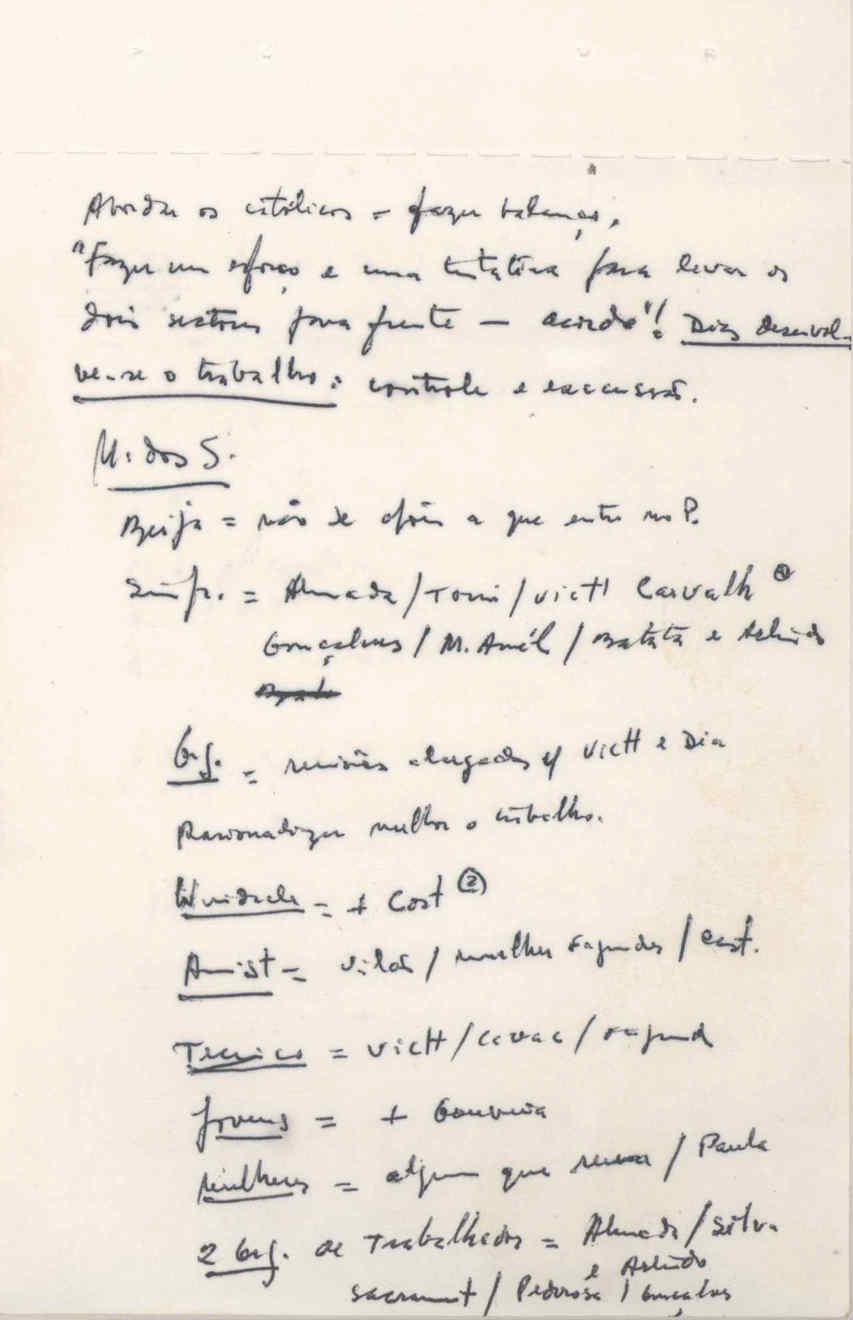 Abordar os católicos = fazer balanço.
"Fazer um esforço e uma tentativa para levar os
dois sectores para frente — acordo"! Dias desenvol-
ve-se o trabalho: controle e execussão.
M. dos S.
Beija = não se opõe a que entre no P.
= Almada/Tomi/Vict Carvalh
Gonçalves / M. Amél / Batata e Arlindo
Org. = reuniões alargadas c/ Vict e Dia
Racionalizar melhor o trabalho.
Unidade = + Cost ②
Amist = Vilas / mulher Fagundes / Cast.
Tecnico = Vict/Cavac/Fagund
Jovens = + Gouveia
Mulheres = algum que / Paula
2 Org. de Trabalhados = Almada/Silva
e Arlindo
Sacrament / Pedrosa / Gonçalves